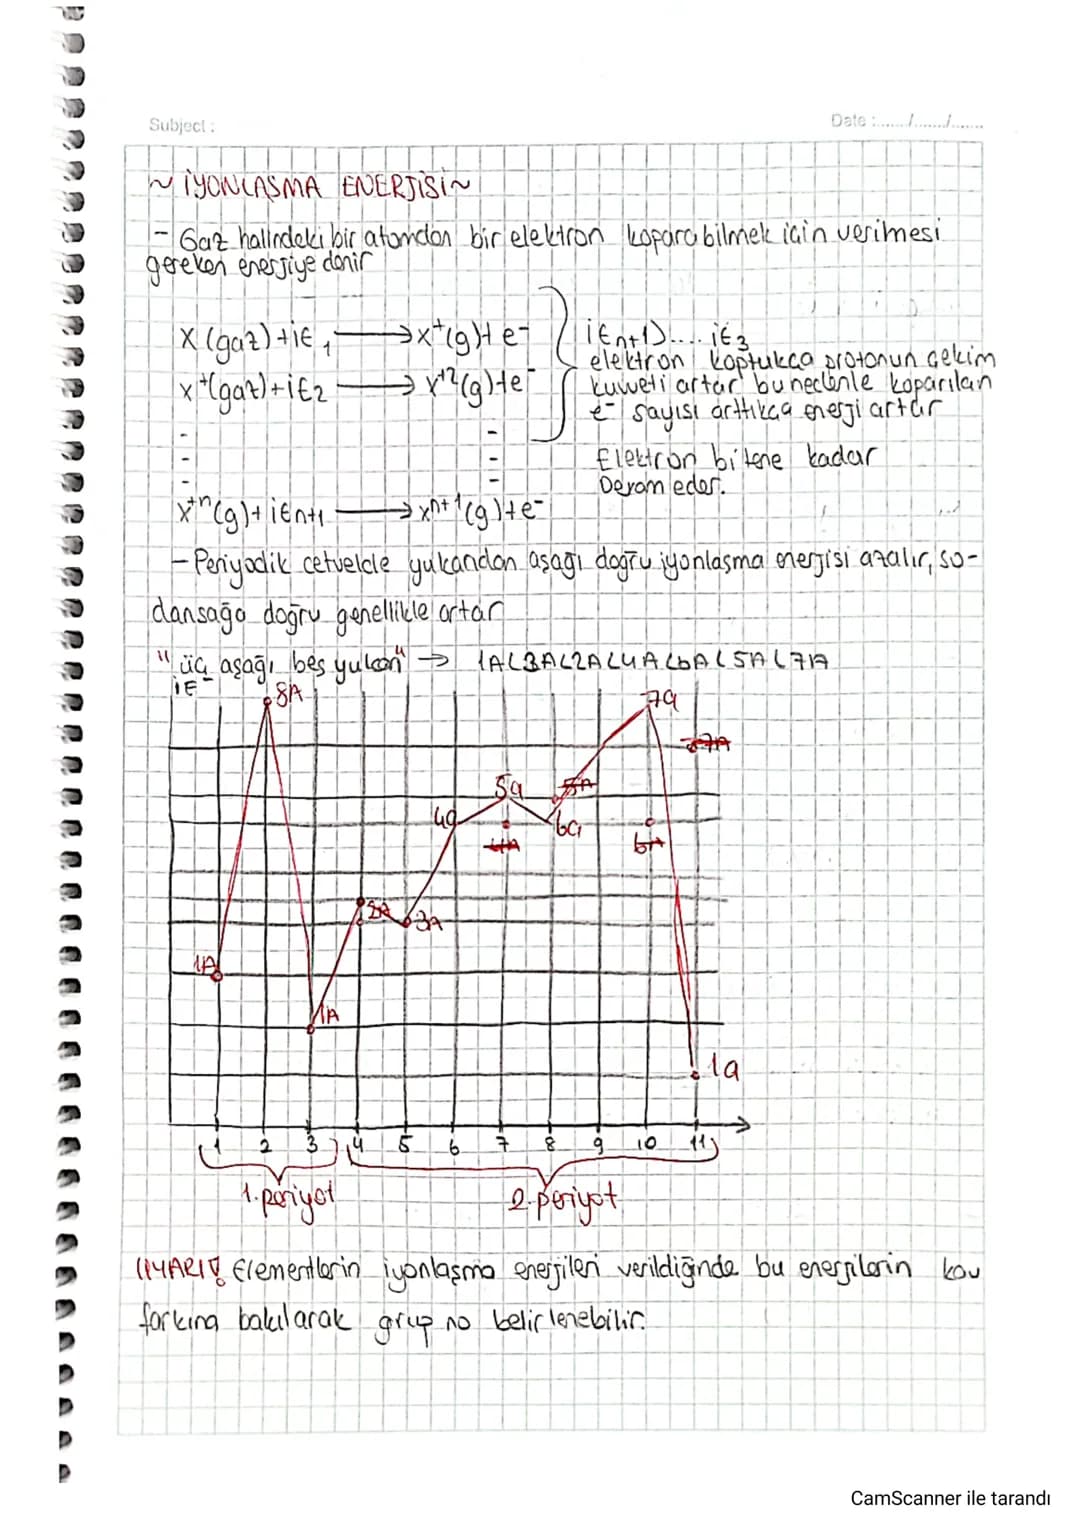 Subject :
Date :....../......./.......
~ İYONLAŞMA ENERJİSİ ~
- Gaz halindeki bir atomdan bir elektron koparabilmek için verilmesi
gereken enerjiye denir
X (gaz) + iE₁ ⟶ x⁺(g) + e⁻
x⁺(gaz) + iE₂ ⟶ x⁺²(g) + e⁻
x⁺ⁿ(g) + iEn+1 ⟶ xⁿ⁺¹(g) + e⁻
iEn+1).... iE₃
elektron koptukça protonun çekim
kuvveti artar bu nedenle koparılan
e⁻ sayısı arttıkça enerji artar
Elektron bitene kadar
Devam eder.
- Periyodik cetvelde yukarıdan aşağı doğru iyonlaşma enerjisi azalır, so-
dan sağa doğru genellikle artar
"üç aşağı beş yukarı" → 1A<3A<2A<4A<6A<5A<7A
iE
8A
7a
7A
5a
5A
4a
6a
4A
6A
3A
1A
1A
1a
1 2 3 4 5 6 7 8 9 10 11
1.periyot
2.periyot
UYARI! Elementlerin iyonlaşma enerjileri verildiğinde bu enerjilerin kav
farkına bakılarak grup no belirlenebilir.
CamScanner ile tarandı